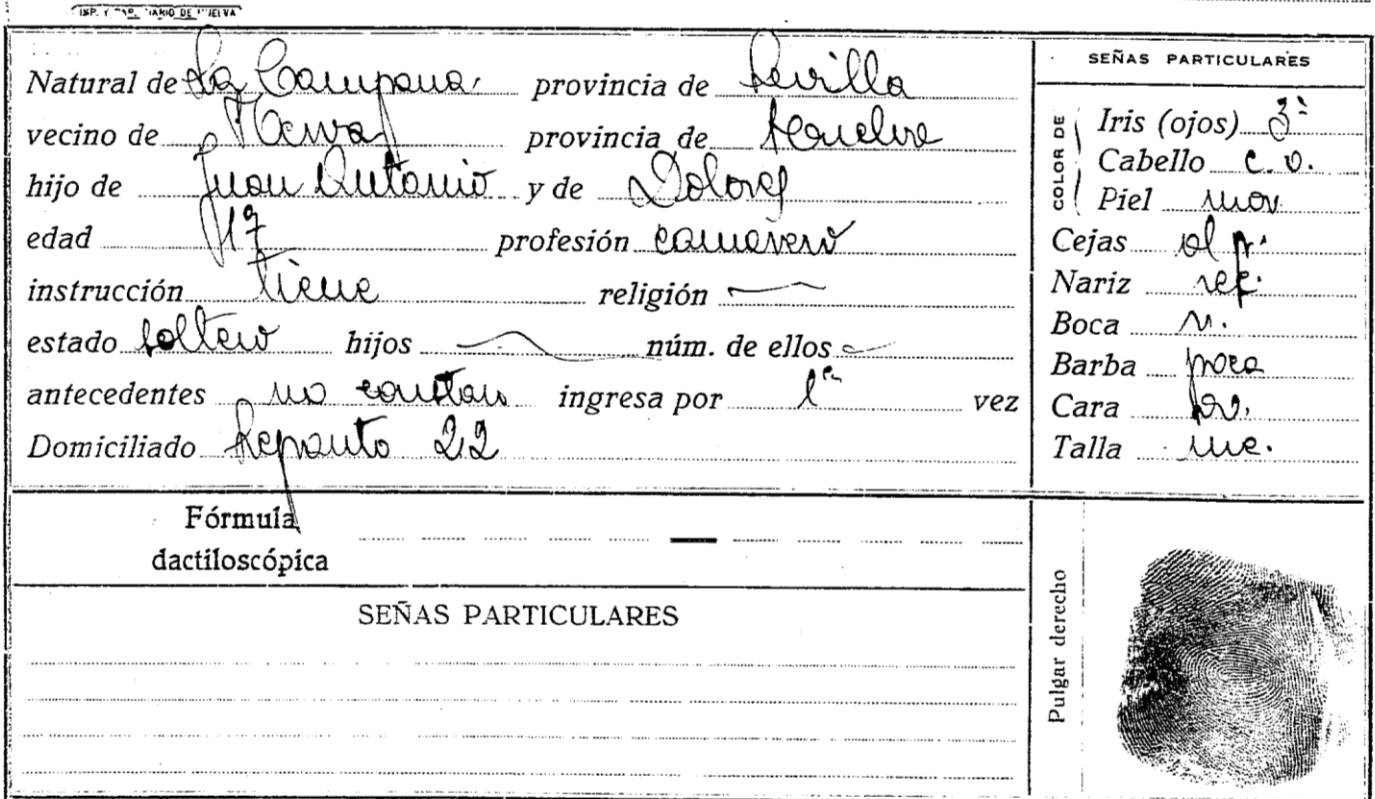 IMP. Y PAP. DIARIO DE HUELVA
Natural de La Campana provincia de Sevilla
vecino de Nerva provincia de Huelva
hijo de Juan Antonio y de Dolores
edad 17 profesión camarero
instrucción tiene religión —
estado soltero hijos — núm. de ellos —
antecedentes no constan ingresa por 1ª vez
Domiciliado Lepanto 22
SEÑAS PARTICULARES
COLOR DE
Iris (ojos) 3º
Cabello c. o.
Piel mor
Cejas al p.
Nariz
Boca n.
Barba poca
Cara ov.
Talla me.
Fórmula
dactiloscópica
SEÑAS PARTICULARES
Pulgar derecho